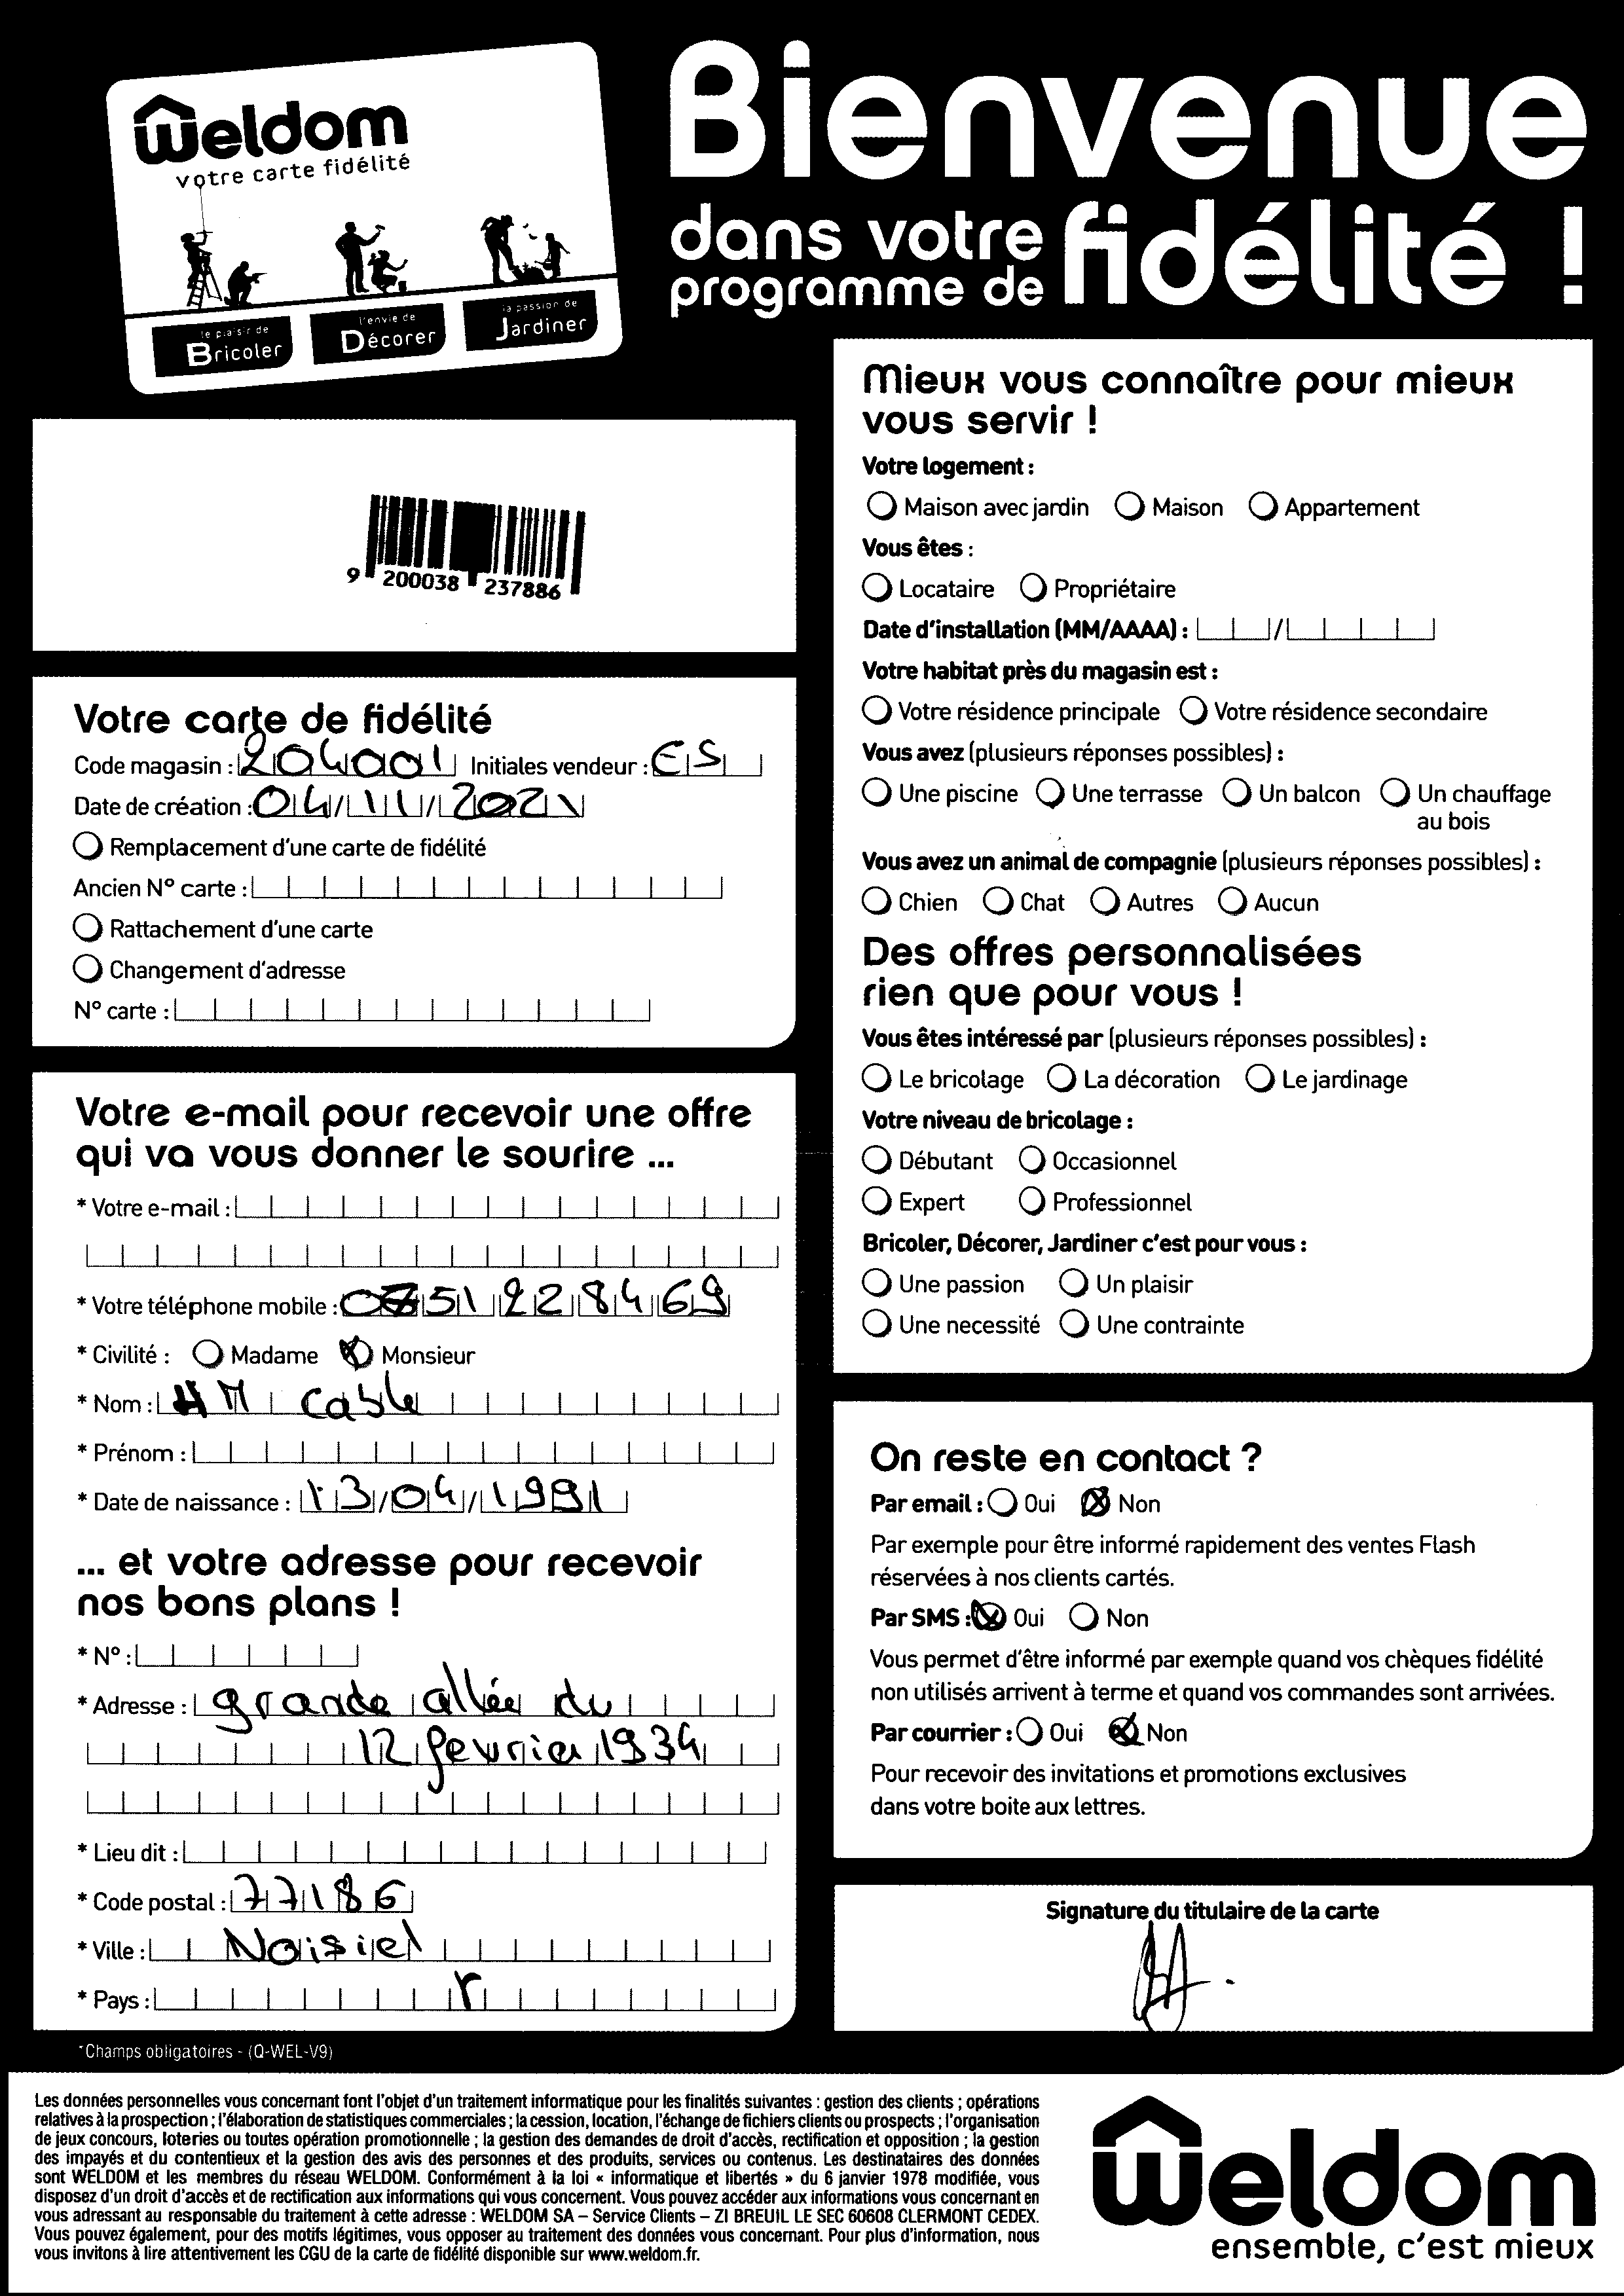 weldom
votre carte fidélité
le plaisir de
Bricoler
l'envie de
Décorer
la passion de
Jardiner
Bienvenue
dans votre
programme de fidélité !
9 200038 237886
Votre carte de fidélité
Code magasin : 204001 Initiales vendeur : ES
Date de création : 04/11/2021
Remplacement d'une carte de fidélité
Ancien N° carte :
Rattachement d'une carte
Changement d'adresse
N° carte :
Votre e-mail pour recevoir une offre
qui va vous donner le sourire ...
* Votre e-mail :
* Votre téléphone mobile : 0751228469
* Civilité : Madame Monsieur
* Nom : HM Cable
* Prénom :
* Date de naissance : 13/04/1991
... et votre adresse pour recevoir
nos bons plans !
* N° :
* Adresse : grande allée du
12 fevrier 1934
* Lieu dit :
* Code postal : 77186
* Ville : Noisiel
* Pays : r
*Champs obligatoires - (Q-WEL-V9)
Mieux vous connaître pour mieux
vous servir !
Votre logement :
Maison avec jardin Maison Appartement
Vous êtes :
Locataire Propriétaire
Date d'installation (MM/AAAA) : /
Votre habitat près du magasin est :
Votre résidence principale Votre résidence secondaire
Vous avez (plusieurs réponses possibles) :
Une piscine Une terrasse Un balcon Un chauffage
au bois
Vous avez un animal de compagnie (plusieurs réponses possibles) :
Chien Chat Autres Aucun
Des offres personnalisées
rien que pour vous !
Vous êtes intéressé par (plusieurs réponses possibles) :
Le bricolage La décoration Le jardinage
Votre niveau de bricolage :
Débutant Occasionnel
Expert Professionnel
Bricoler, Décorer, Jardiner c'est pour vous :
Une passion Un plaisir
Une necessité Une contrainte
On reste en contact ?
Par email : Oui Non
Par exemple pour être informé rapidement des ventes Flash
réservées à nos clients cartés.
Par SMS : Oui Non
Vous permet d'être informé par exemple quand vos chèques fidélité
non utilisés arrivent à terme et quand vos commandes sont arrivées.
Par courrier : Oui Non
Pour recevoir des invitations et promotions exclusives
dans votre boite aux lettres.
Signature du titulaire de la carte
Les données personnelles vous concernant font l'objet d'un traitement informatique pour les finalités suivantes : gestion des clients ; opérations
relatives à la prospection ; l'élaboration de statistiques commerciales ; la cession, location, l'échange de fichiers clients ou prospects ; l'organisation
de jeux concours, loteries ou toutes opération promotionnelle ; la gestion des demandes de droit d'accès, rectification et opposition ; la gestion
des impayés et du contentieux et la gestion des avis des personnes et des produits, services ou contenus. Les destinataires des données
sont WELDOM et les membres du réseau WELDOM. Conformément à la loi « informatique et libertés » du 6 janvier 1978 modifiée, vous
disposez d'un droit d'accès et de rectification aux informations qui vous concernent. Vous pouvez accéder aux informations vous concernant en
vous adressant au responsable du traitement à cette adresse : WELDOM SA – Service Clients – ZI BREUIL LE SEC 60608 CLERMONT CEDEX.
Vous pouvez également, pour des motifs légitimes, vous opposer au traitement des données vous concernant. Pour plus d'information, nous
vous invitons à lire attentivement les CGU de la carte de fidélité disponible sur www.weldom.fr.
weldom
ensemble, c'est mieux